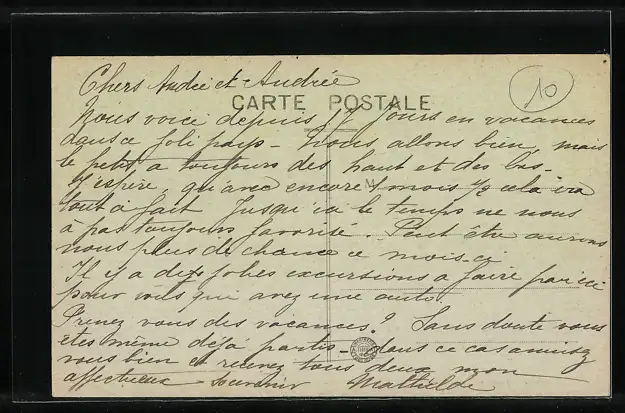 Chers André et Andrée
10
CARTE POSTALE
Nous voici depuis jours en vacances
dans ce joli pays - Nous allons bien, mais
le petit a toujours des haut et des bas -
J'espère, qu'avec encore 1 mois ½ cela ira
tout à fait. Jusqu'ici le temps ne nous
à pas toujours favorisé. Peut être aurons
nous plus de chance ce mois-ci
Il y a de jolies excursions a faire par ici
pour vous qui avez une auto.
Prenez vous des vacances? Sans doute vous
êtes même déjà partis - dans ce cas amusez
vous bien et recevez tous deux mon
affectueux souvenir Mathilde